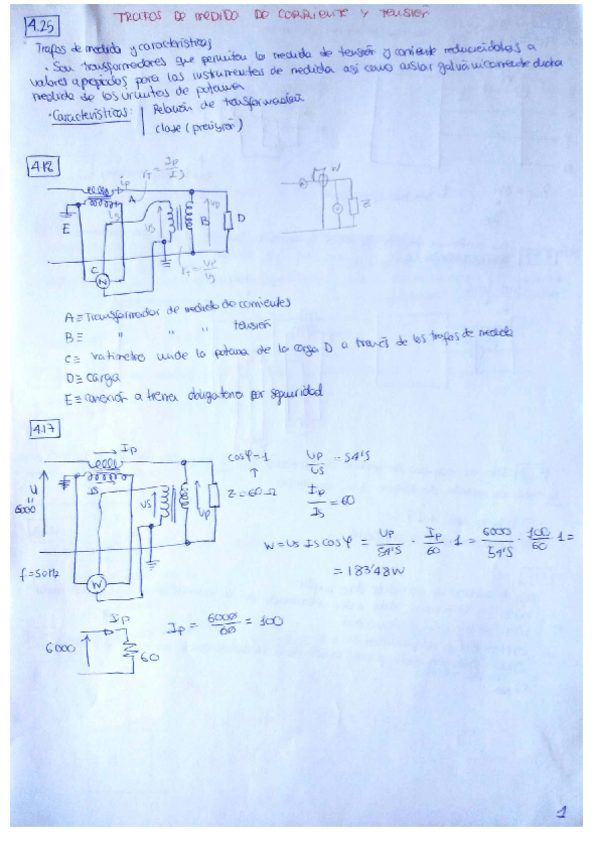 TRAFOS DE MEDIDO DE CORRIENTE Y TENSIÓN
4.25
Trafos de medida y características
• Son transformadores que permiten la medida de tensión y corriente reduciéndolas a
valores apropiados para los instrumentos de medida así como aislar galvánicamente dicha
medida de los circuitos de potencia
• Características: Relación de transformación
clase (precisión)
4.18
ip
rT = Ip/Is
A
is
E
Vs
B
Up
D
C
W
rT = Up/Us
W
Z
A ≡ Transformador de medida de corrientes
B ≡ " " " tensión
C ≡ Vatímetro mide la potencia de la carga D a través de los trafos de medida
D ≡ carga
E ≡ conexión a tierra obligatorio por seguridad
4.17
Ip
Is
U = 6000
Us
Up
f = 50Hz
W
cosφ = 1
↑
Z = 60 Ω
Up/Us = 54'5
Ip/Is = 60
W = Us Is cosφ = Up/54'5 · Ip/60 · 1 = 6000/54'5 · 100/60 · 1 =
= 183'48W
Ip
6000
60
Ip = 6000/60 = 100
1